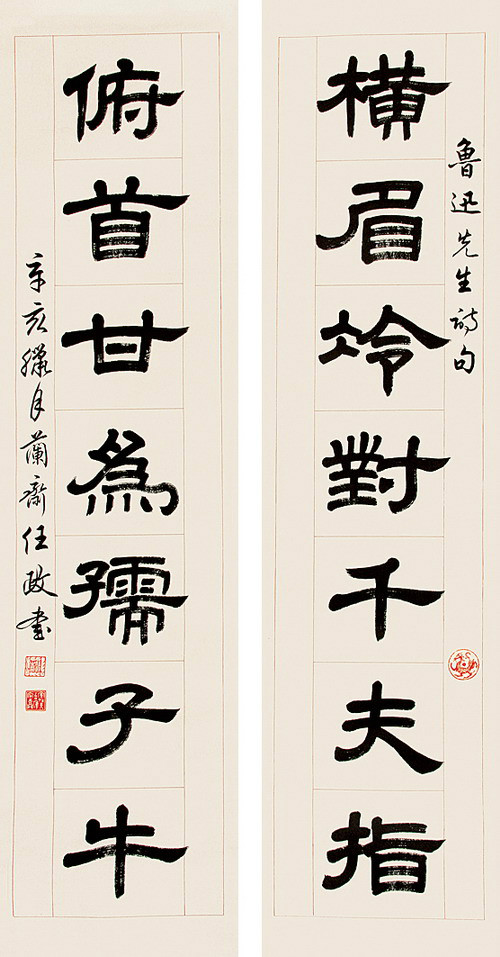 魯迅先生詩句
橫眉冷對千夫指
俯首甘為孺子牛
辛亥臘月蘭齋任政書